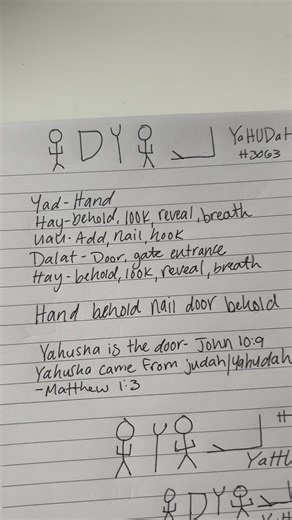 YaHUDat
H3063
Yad-Hand
Hay-behold, look, reveal, breath
Uau-Add, nail, hook
Dalat-Door, gate entrance
Hay-behold, look, reveal, breath
Hand behold nail door behold
Yahusha is the door- John 10:9
Yahusha came from judah/yahudah
-Matthew 1:3
H